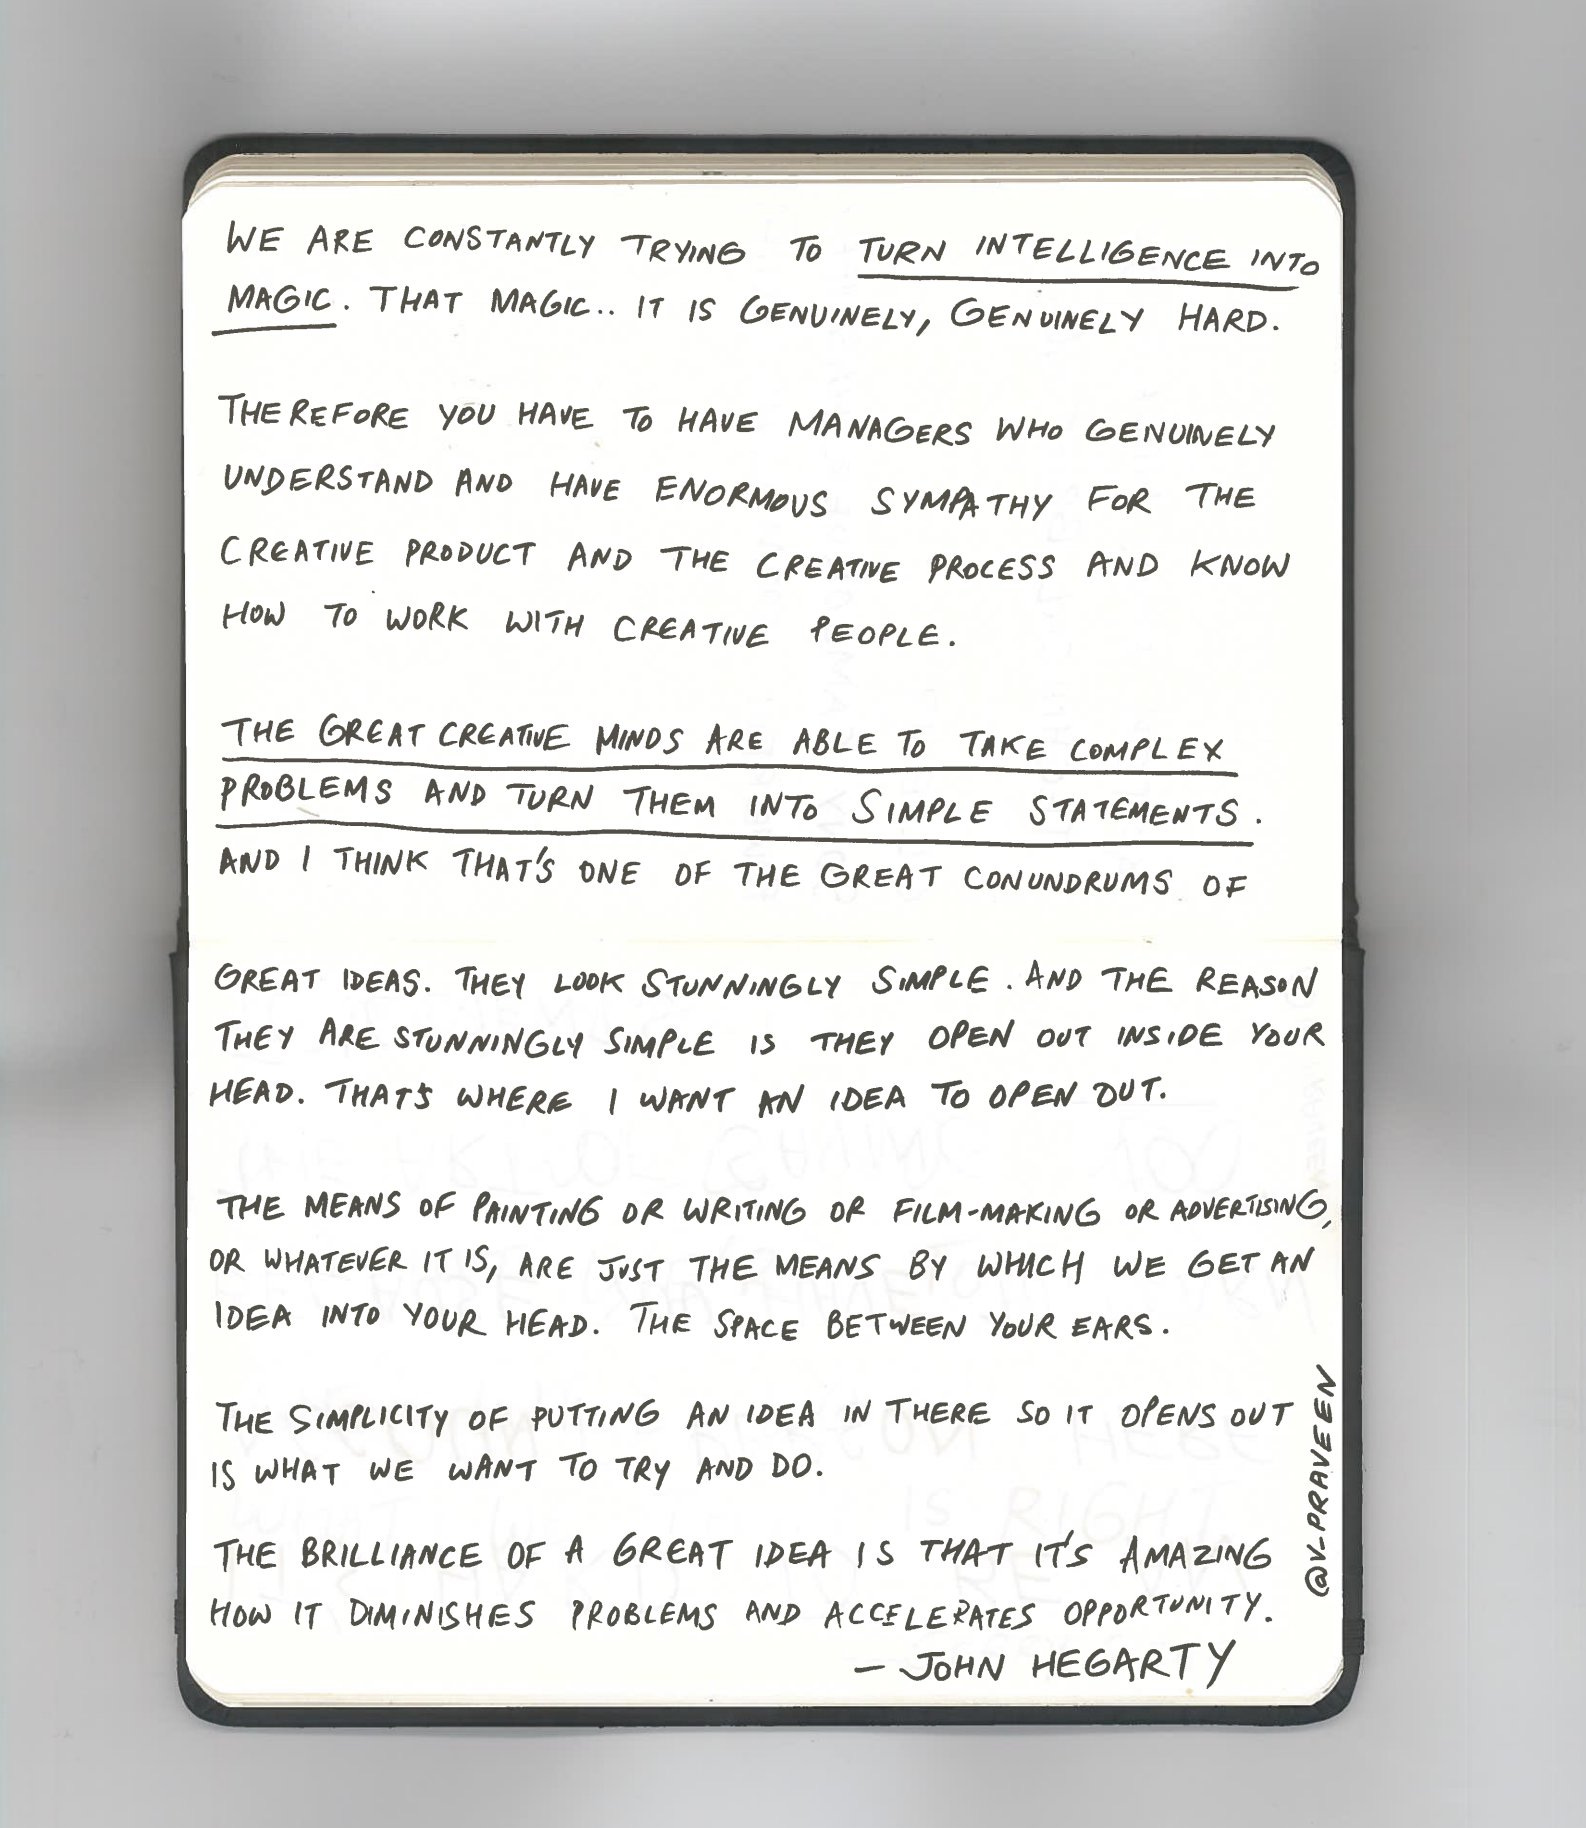 WE ARE CONSTANTLY TRYING TO TURN INTELLIGENCE INTO
MAGIC. THAT MAGIC.. IT IS GENUINELY, GENUINELY HARD.
THEREFORE YOU HAVE TO HAVE MANAGERS WHO GENUINELY
UNDERSTAND AND HAVE ENORMOUS SYMPATHY FOR THE
CREATIVE PRODUCT AND THE CREATIVE PROCESS AND KNOW
HOW TO WORK WITH CREATIVE PEOPLE.
THE GREAT CREATIVE MINDS ARE ABLE TO TAKE COMPLEX
PROBLEMS AND TURN THEM INTO SIMPLE STATEMENTS.
AND I THINK THAT'S ONE OF THE GREAT CONUNDRUMS OF
GREAT IDEAS. THEY LOOK STUNNINGLY SIMPLE. AND THE REASON
THEY ARE STUNNINGLY SIMPLE IS THEY OPEN OUT INSIDE YOUR
HEAD. THAT'S WHERE I WANT AN IDEA TO OPEN OUT.
THE MEANS OF PAINTING OR WRITING OR FILM-MAKING OR ADVERTISING,
OR WHATEVER IT IS, ARE JUST THE MEANS BY WHICH WE GET AN
IDEA INTO YOUR HEAD. THE SPACE BETWEEN YOUR EARS.
THE SIMPLICITY OF PUTTING AN IDEA IN THERE SO IT OPENS OUT
IS WHAT WE WANT TO TRY AND DO.
THE BRILLIANCE OF A GREAT IDEA IS THAT IT'S AMAZING
HOW IT DIMINISHES PROBLEMS AND ACCELERATES OPPORTUNITY.
– JOHN HEGARTY
@V-PRAVEEN